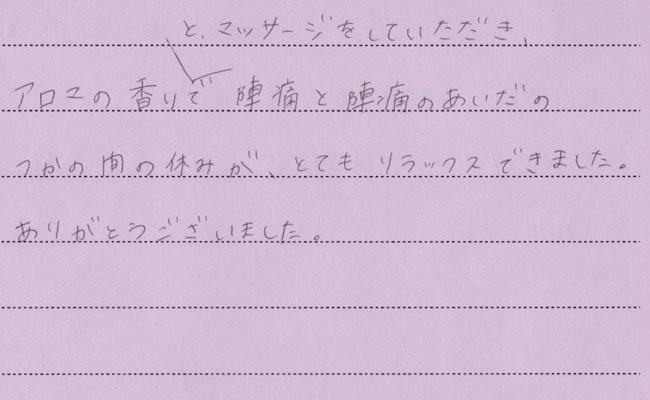 と、マッサージをしていただき、
アロマの香りで 陣痛と陣痛のあいだの
つかの間の休みが、とても リラックスできました。
ありがとうございました。